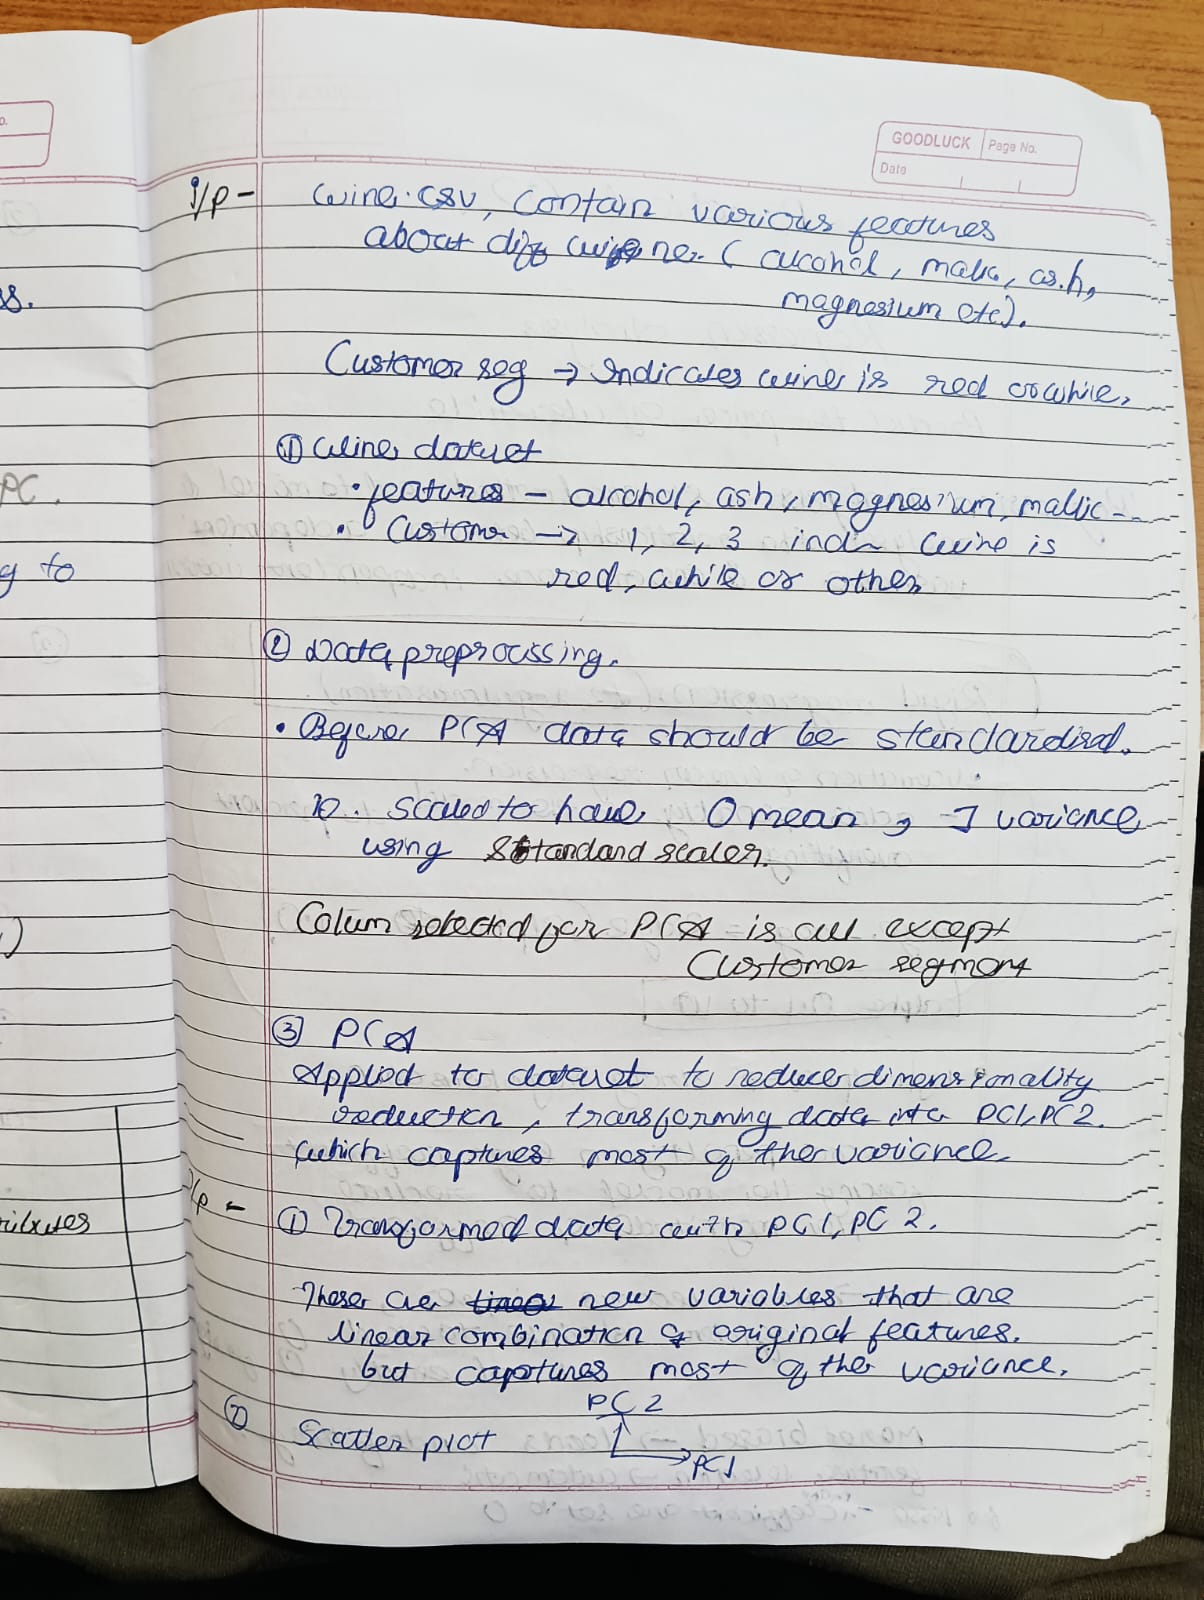 GOODLUCK Page No.
Date
i/p - wine.csv, contain various features
about diff wine (alcohol, malic, ash,
magnesium etc).
Customer seg → Indicates wine is red or white.
① Wine dataset
• features - alcohol, ash, magnesium, mallic --
• Customer → 1, 2, 3 ind~ wine is
red, white or other
② Data preprocissing.
• Before PCA data should be standardised.
Scaled to have 0 mean, -1 variance
using Standard scaler.
Colum selected for PCA is all except
Customer segment
③ PCA
Applied to dataset to reduce dimensionality
reduction, transforming data into PC1, PC2.
which captures most of the variance.
o/p - ① Transformed data with PC1, PC2.
These are new variables that are
linear combination of original features.
but captures most of the variance.
② Scatter plot
PC2
PC1
ss.
PC.
g to
)